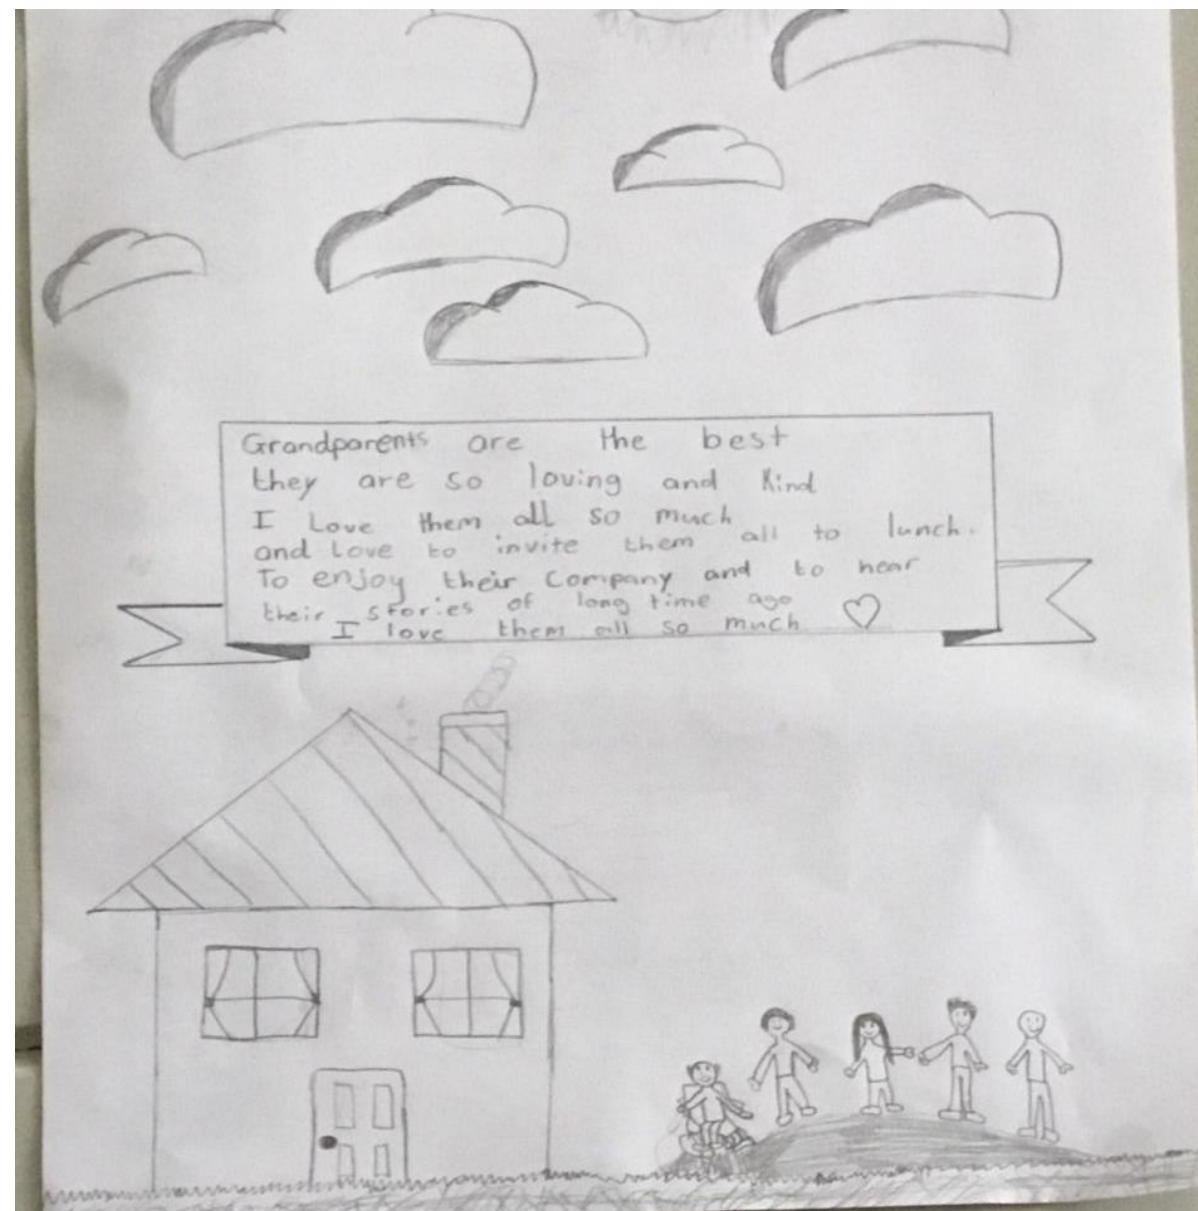 Grandparents are the best
they are so loving and kind
I Love them all so much
and love to invite them all to lunch.
To enjoy their company and to hear
their stories of long time ago
I love them all so much